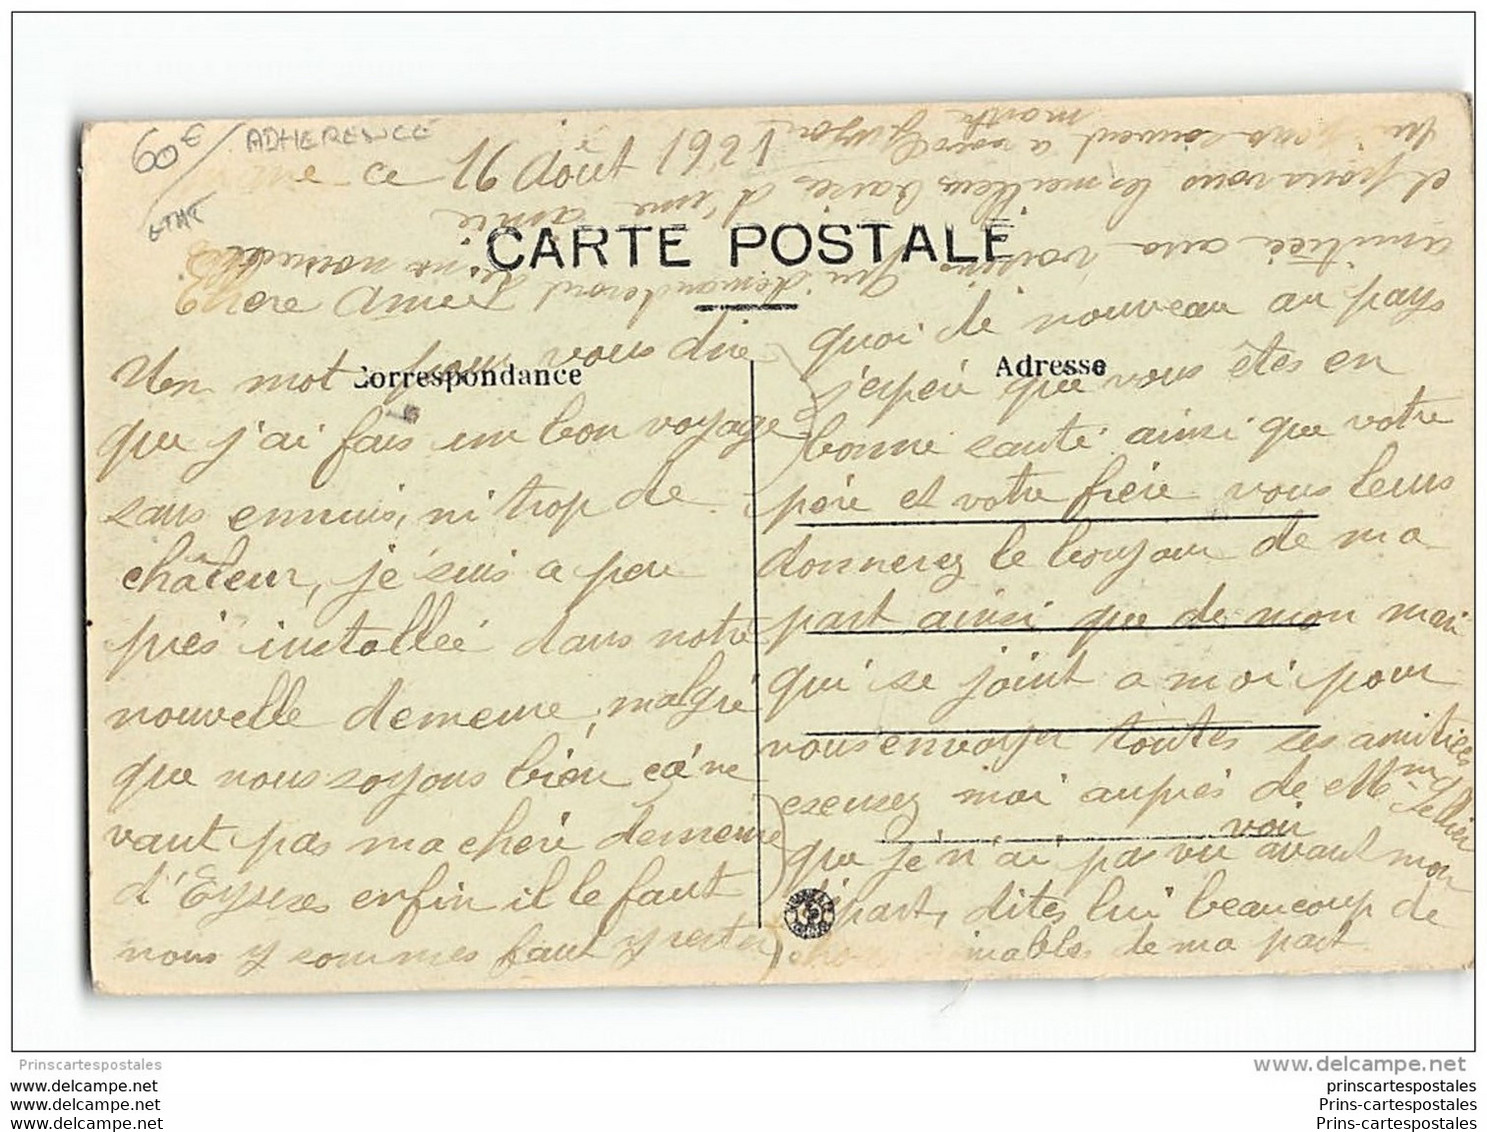 60€ ADHERENCE
ETAT
ce 16 Août 1921
CARTE POSTALE
chère Amie
Correspondance
Adresse
Un mot pour vous dire
que j'ai fais un bon voyage
sans ennuis, ni trop de
châleur, je suis a peu
près installée dans notre
nouvelle demeure, malgré
que nous soyons bien ça ne
vaut pas ma chère demeure
d'Eysses enfin il le faut
nous y sommes faut y rester
quoi de nouveau au pays
j'espère que vous êtes en
bonne santé ainsi que votre
père et votre frère vous leurs
donnerez le bonjour de ma
part ainsi que de mon mari
qui se joint a moi pour
vous envoyer toutes ses amitiés
excusez moi auprès de Mme Sellier
que je n'ai pas vu voir avant mon
départ, dites lui beaucoup de
choses aimables de ma part
amitiés aux voisins qui demanderont de nos nouvelles
et pour vous les meilleurs baisers d'une amie
qui pense souvent a vous
Marthe
Prinscartespostales
www.delcampe.net
www.delcampe.net
www.delcampe.net
www.delcampe.net
prinscartespostales
Prins-cartespostales
Prins-cartespostales